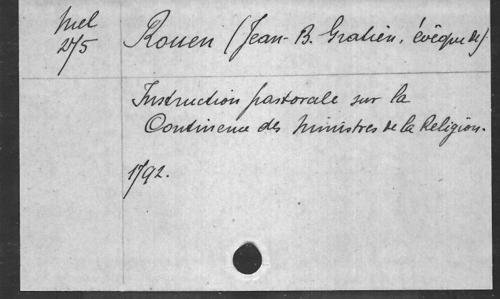 Mel
275
Rouen (Jean-B. Gratien, évêque de)
Instruction pastorale sur la
Continence des Ministres de la Religion.
1792.